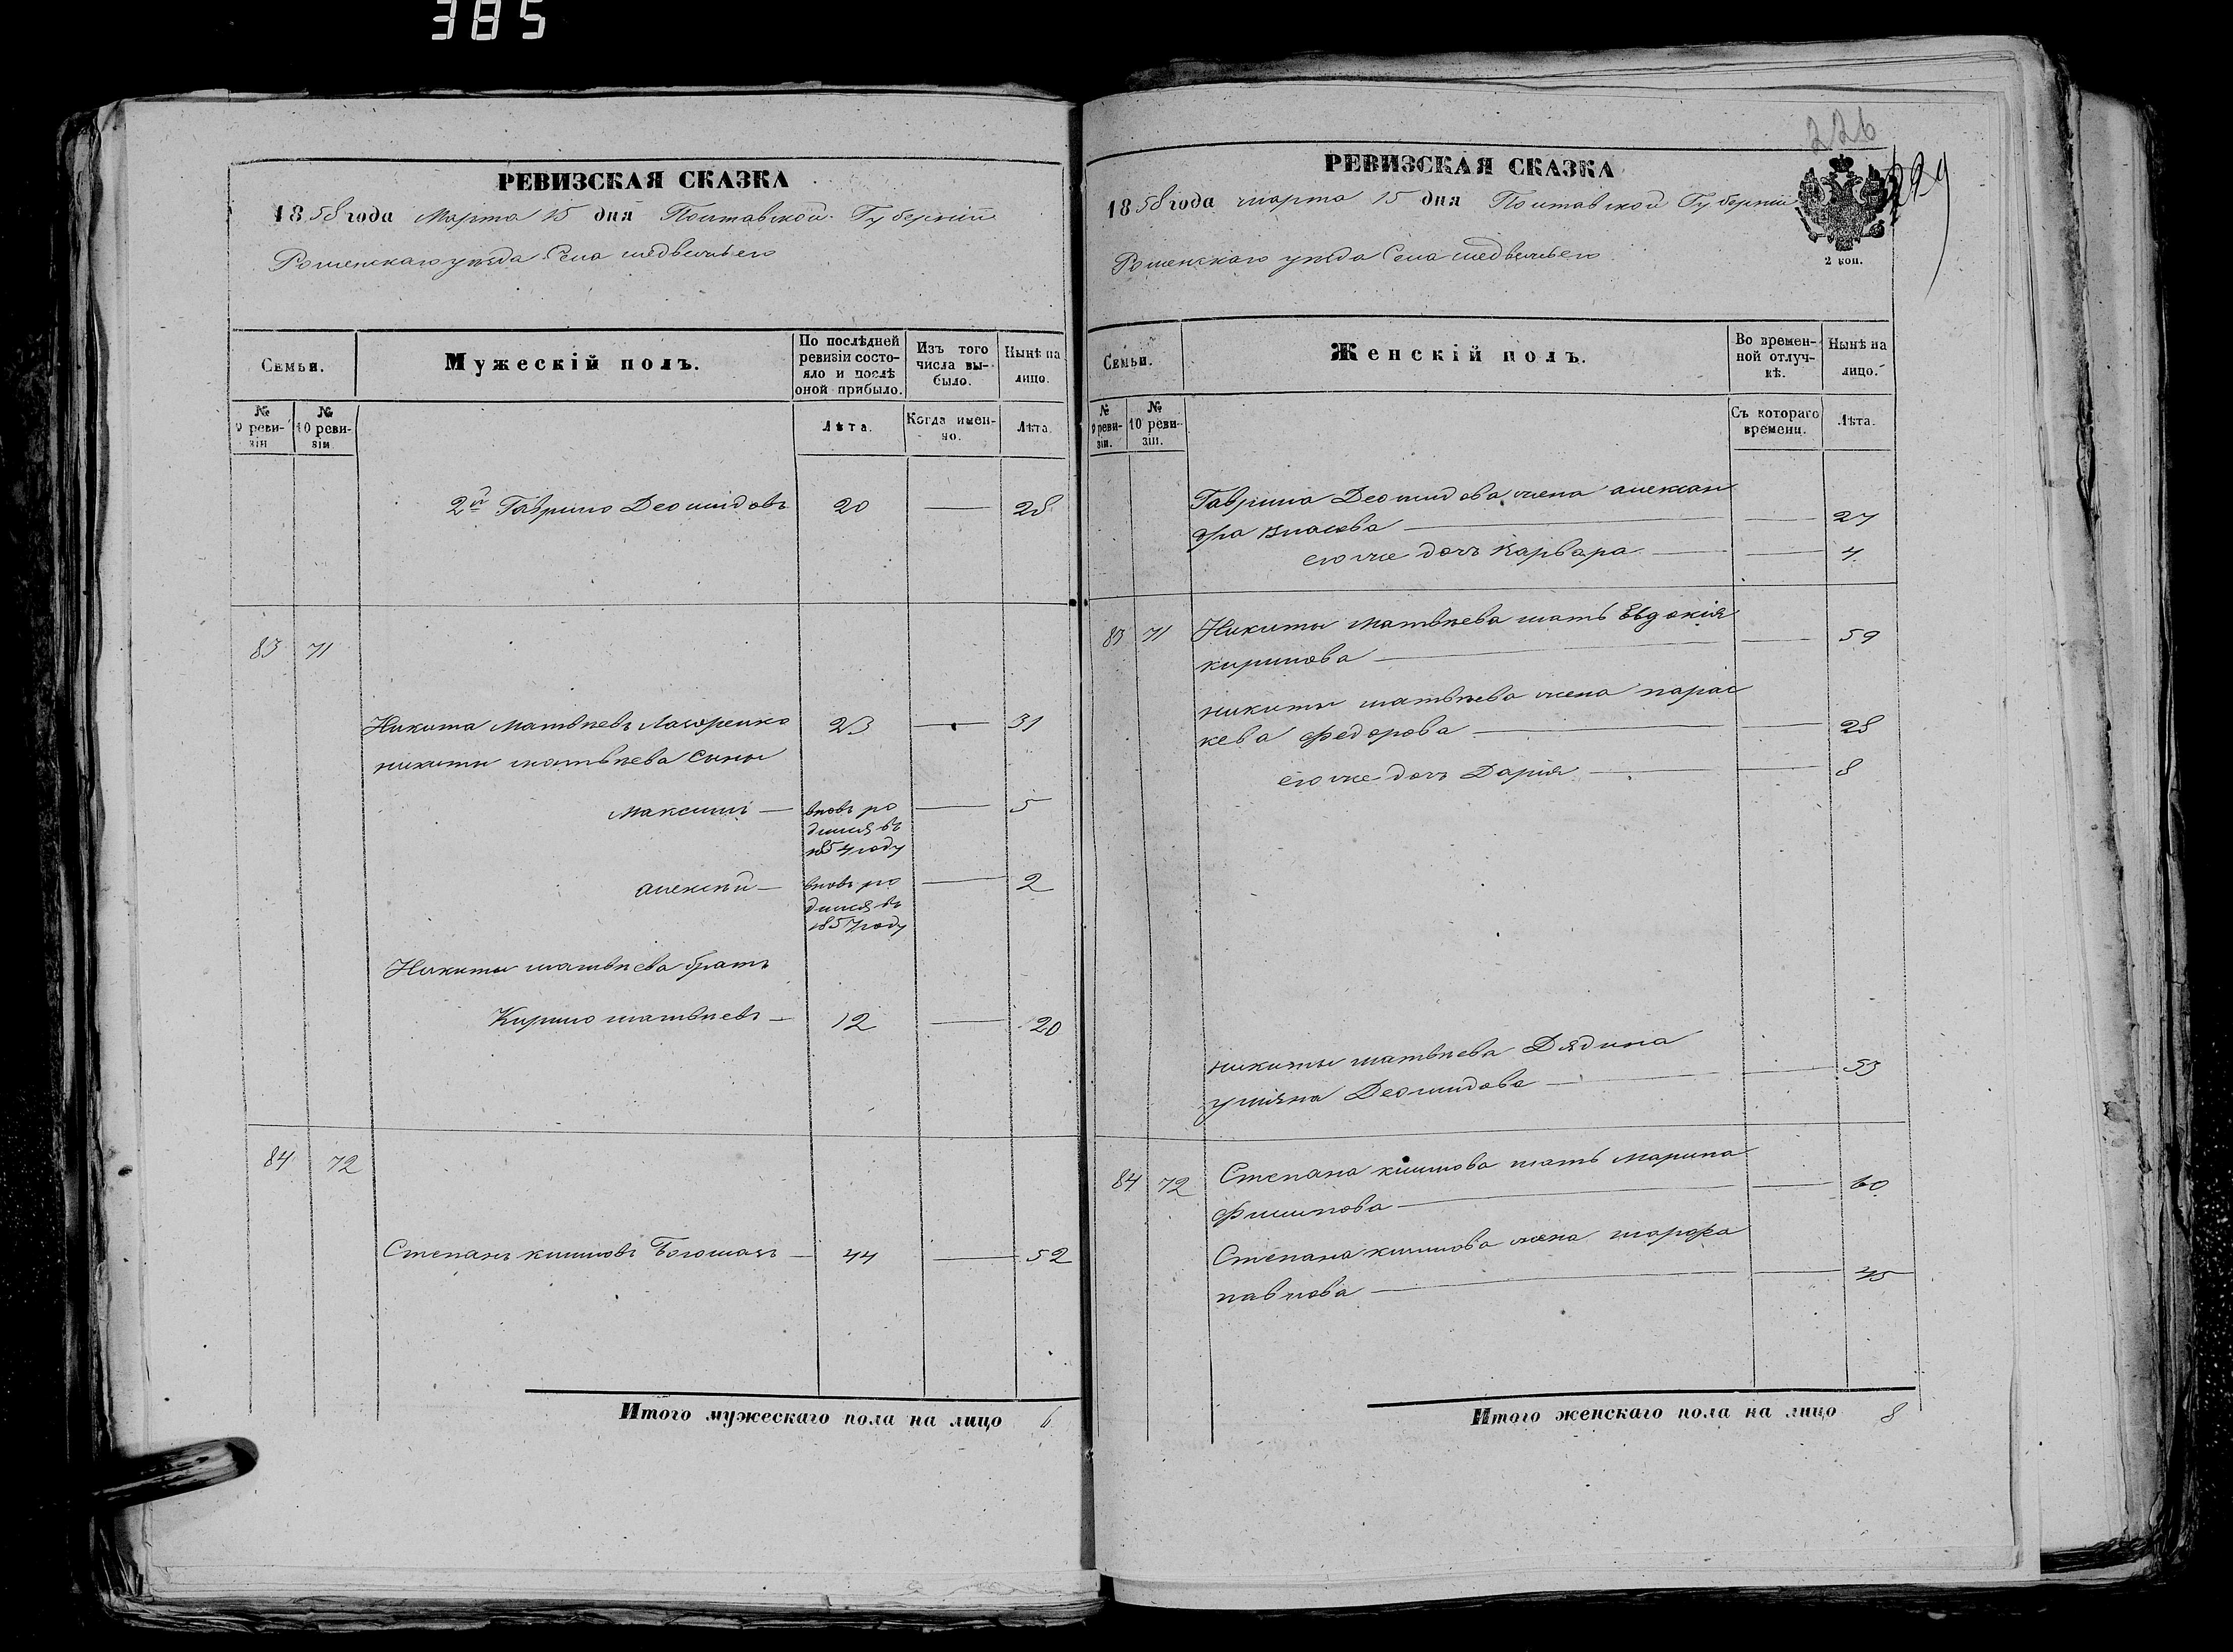 385
РЕВИЗСКАЯ СКАЗКА
1858 года Марта 15 дня Полтавской Губерніи
Роменскаго уѣзда Села медвежьего
Семьи.
Мужескій полъ.
По послѣдней ревизіи состояло и послѣ оной прибыло.
Изъ того числа выбыло.
Нынѣ на лицо.
№ 9 ревизіи
№ 10 ревизіи
Лѣта.
Когда именно.
Лѣта.
2й Гаврило Деомидовъ 20 — 28
83 71
Никита Матвѣевъ 23 — 31
никиты матвѣева Сыны
Максимъ — вновь родился въ 185 году — 5
алексѣй — вновь родился въ 1857 году — 2
Никиты матвѣева братъ
Кирило матвѣевъ — 12 — 20
84 72
Степанъ климовъ — 44 — 52
Итого мужескаго пола на лицо 6
226
229
РЕВИЗСКАЯ СКАЗКА
1858 года марта 15 дня Полтавской Губерніи
Роменскаго уѣзда Села медвежьего
2 коп.
Семьи.
Женскій полъ.
Во временной отлучкѣ.
Нынѣ на лицо.
№ 9 ревизіи.
№ 10 ревизіи.
Съ котораго времени.
Лѣта.
Гаврила Деомидова жена алексан
дра власова — — 27
его же дочь варвара — — 4
83 71 Никиты матвѣева мать Евдокія
кирилова — — 59
никиты матвѣева жена парас
кева федорова — — 28
его же дочь Дарія — — 8
никиты матвѣева Дядина
уліяна Деомидова — — 53
84 72 Степана климова мать марина
филипова — — 60
Степана климова жена марфа
павлова — — 45
Итого женскаго пола на лицо 8